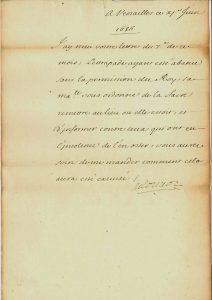 A Versailles ce 21e Juin
1686
J'ay receu vostre lettre du 7e de ce
mois, Lestrapade ayant esté absent
sans la permission du Roy, sa
ma.te vous ordonne de la faire
remettre au lieu ou elle estoit, et
d'informer contre ceux qui ont eu
l'insolence de l'en oster, vous aurez
soin de me mander comment cela
aura esté executé